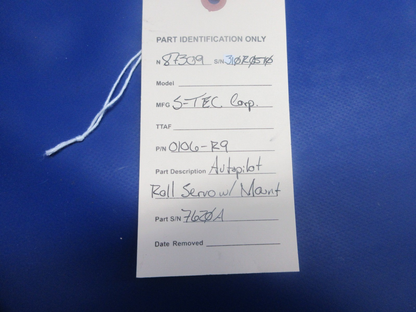 PART IDENTIFICATION ONLY
N 87309 S/N
Model
MFG S-TEC Corp.
TTAF
P/N 0106-R9
Part Description Autopilot
Roll Servo w/ Mount
Part S/N 7620A
Date Removed